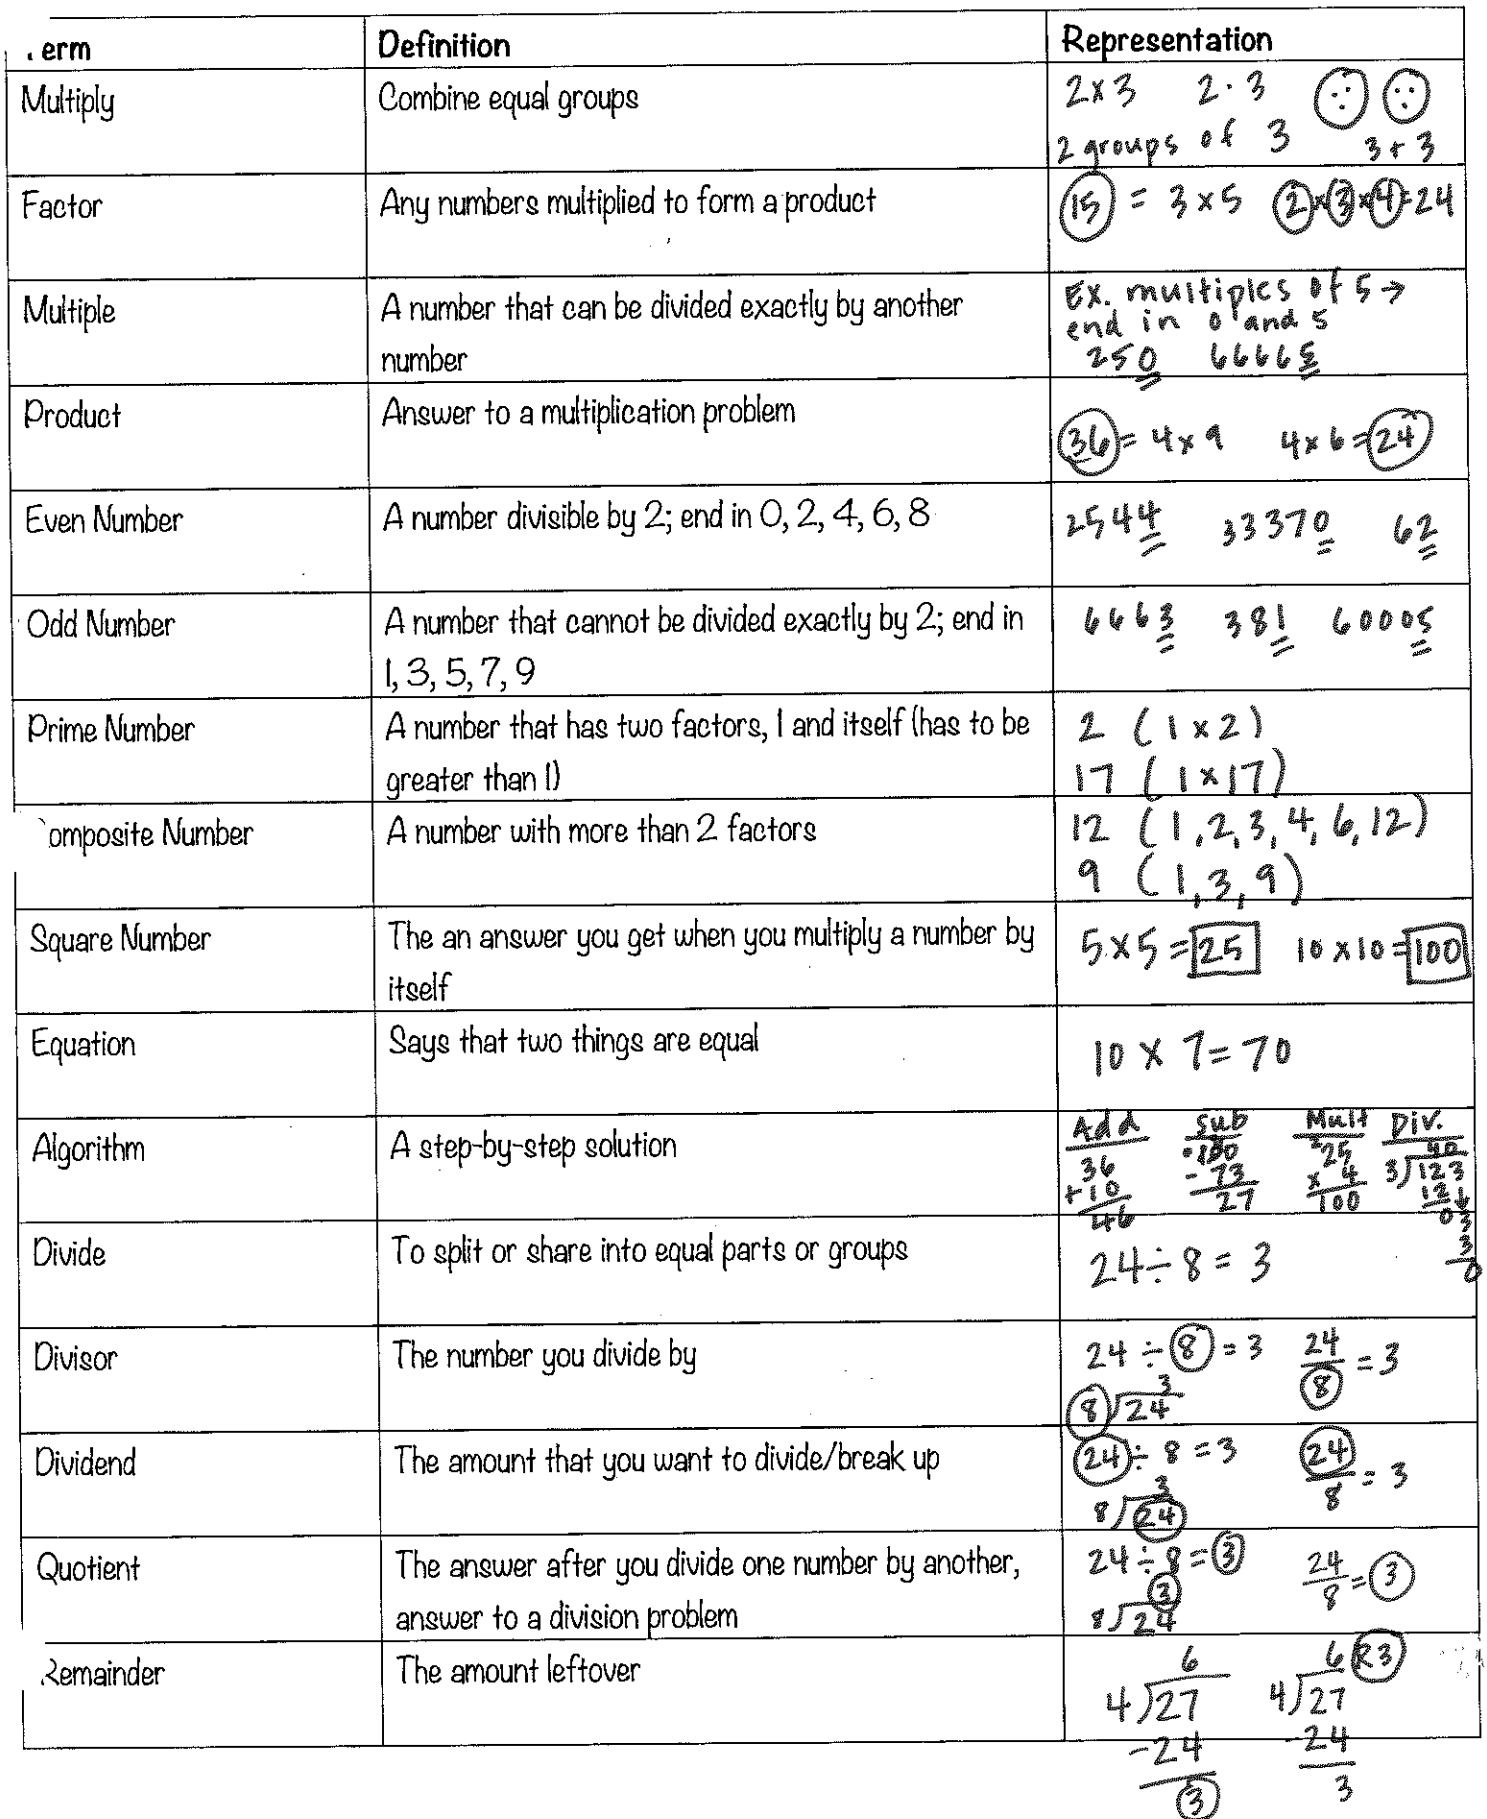 .erm Definition Representation
Multiply Combine equal groups 2x3 2·3
2 groups of 3 3+3
Factor Any numbers multiplied to form a product 15 = 3x5 2x3x4=24
Multiple A number that can be divided exactly by another
number
Ex. multiples of 5 →
end in 0 and 5
250 66665
Product Answer to a multiplication problem 36=4x9 4x6=24
Even Number A number divisible by 2; end in 0, 2, 4, 6, 8 2544 33370 62
Odd Number A number that cannot be divided exactly by 2; end in
1, 3, 5, 7, 9
6663 381 60005
Prime Number A number that has two factors, 1 and itself (has to be
greater than 1)
2 (1x2)
17 (1x17)
omposite Number A number with more than 2 factors 12 (1,2,3,4,6,12)
9 (1,3,9)
Square Number The an answer you get when you multiply a number by
itself
5x5=25 10x10=100
Equation Says that two things are equal 10 x 7=70
Algorithm A step-by-step solution
Add Sub Mult Div.
36 100 25 40
+10 -73 x 4 3)123
46 27 100 12↓
03
3
0
Divide To split or share into equal parts or groups 24÷8=3
Divisor The number you divide by 24÷8=3 24/8=3
3
8)24
Dividend The amount that you want to divide/break up 24÷8=3 24/8=3
3
8)24
Quotient The answer after you divide one number by another,
answer to a division problem
24÷8=3 24/8=3
3
8)24
Remainder The amount leftover 6 6 R3
4)27 4)27
-24 -24
3 3